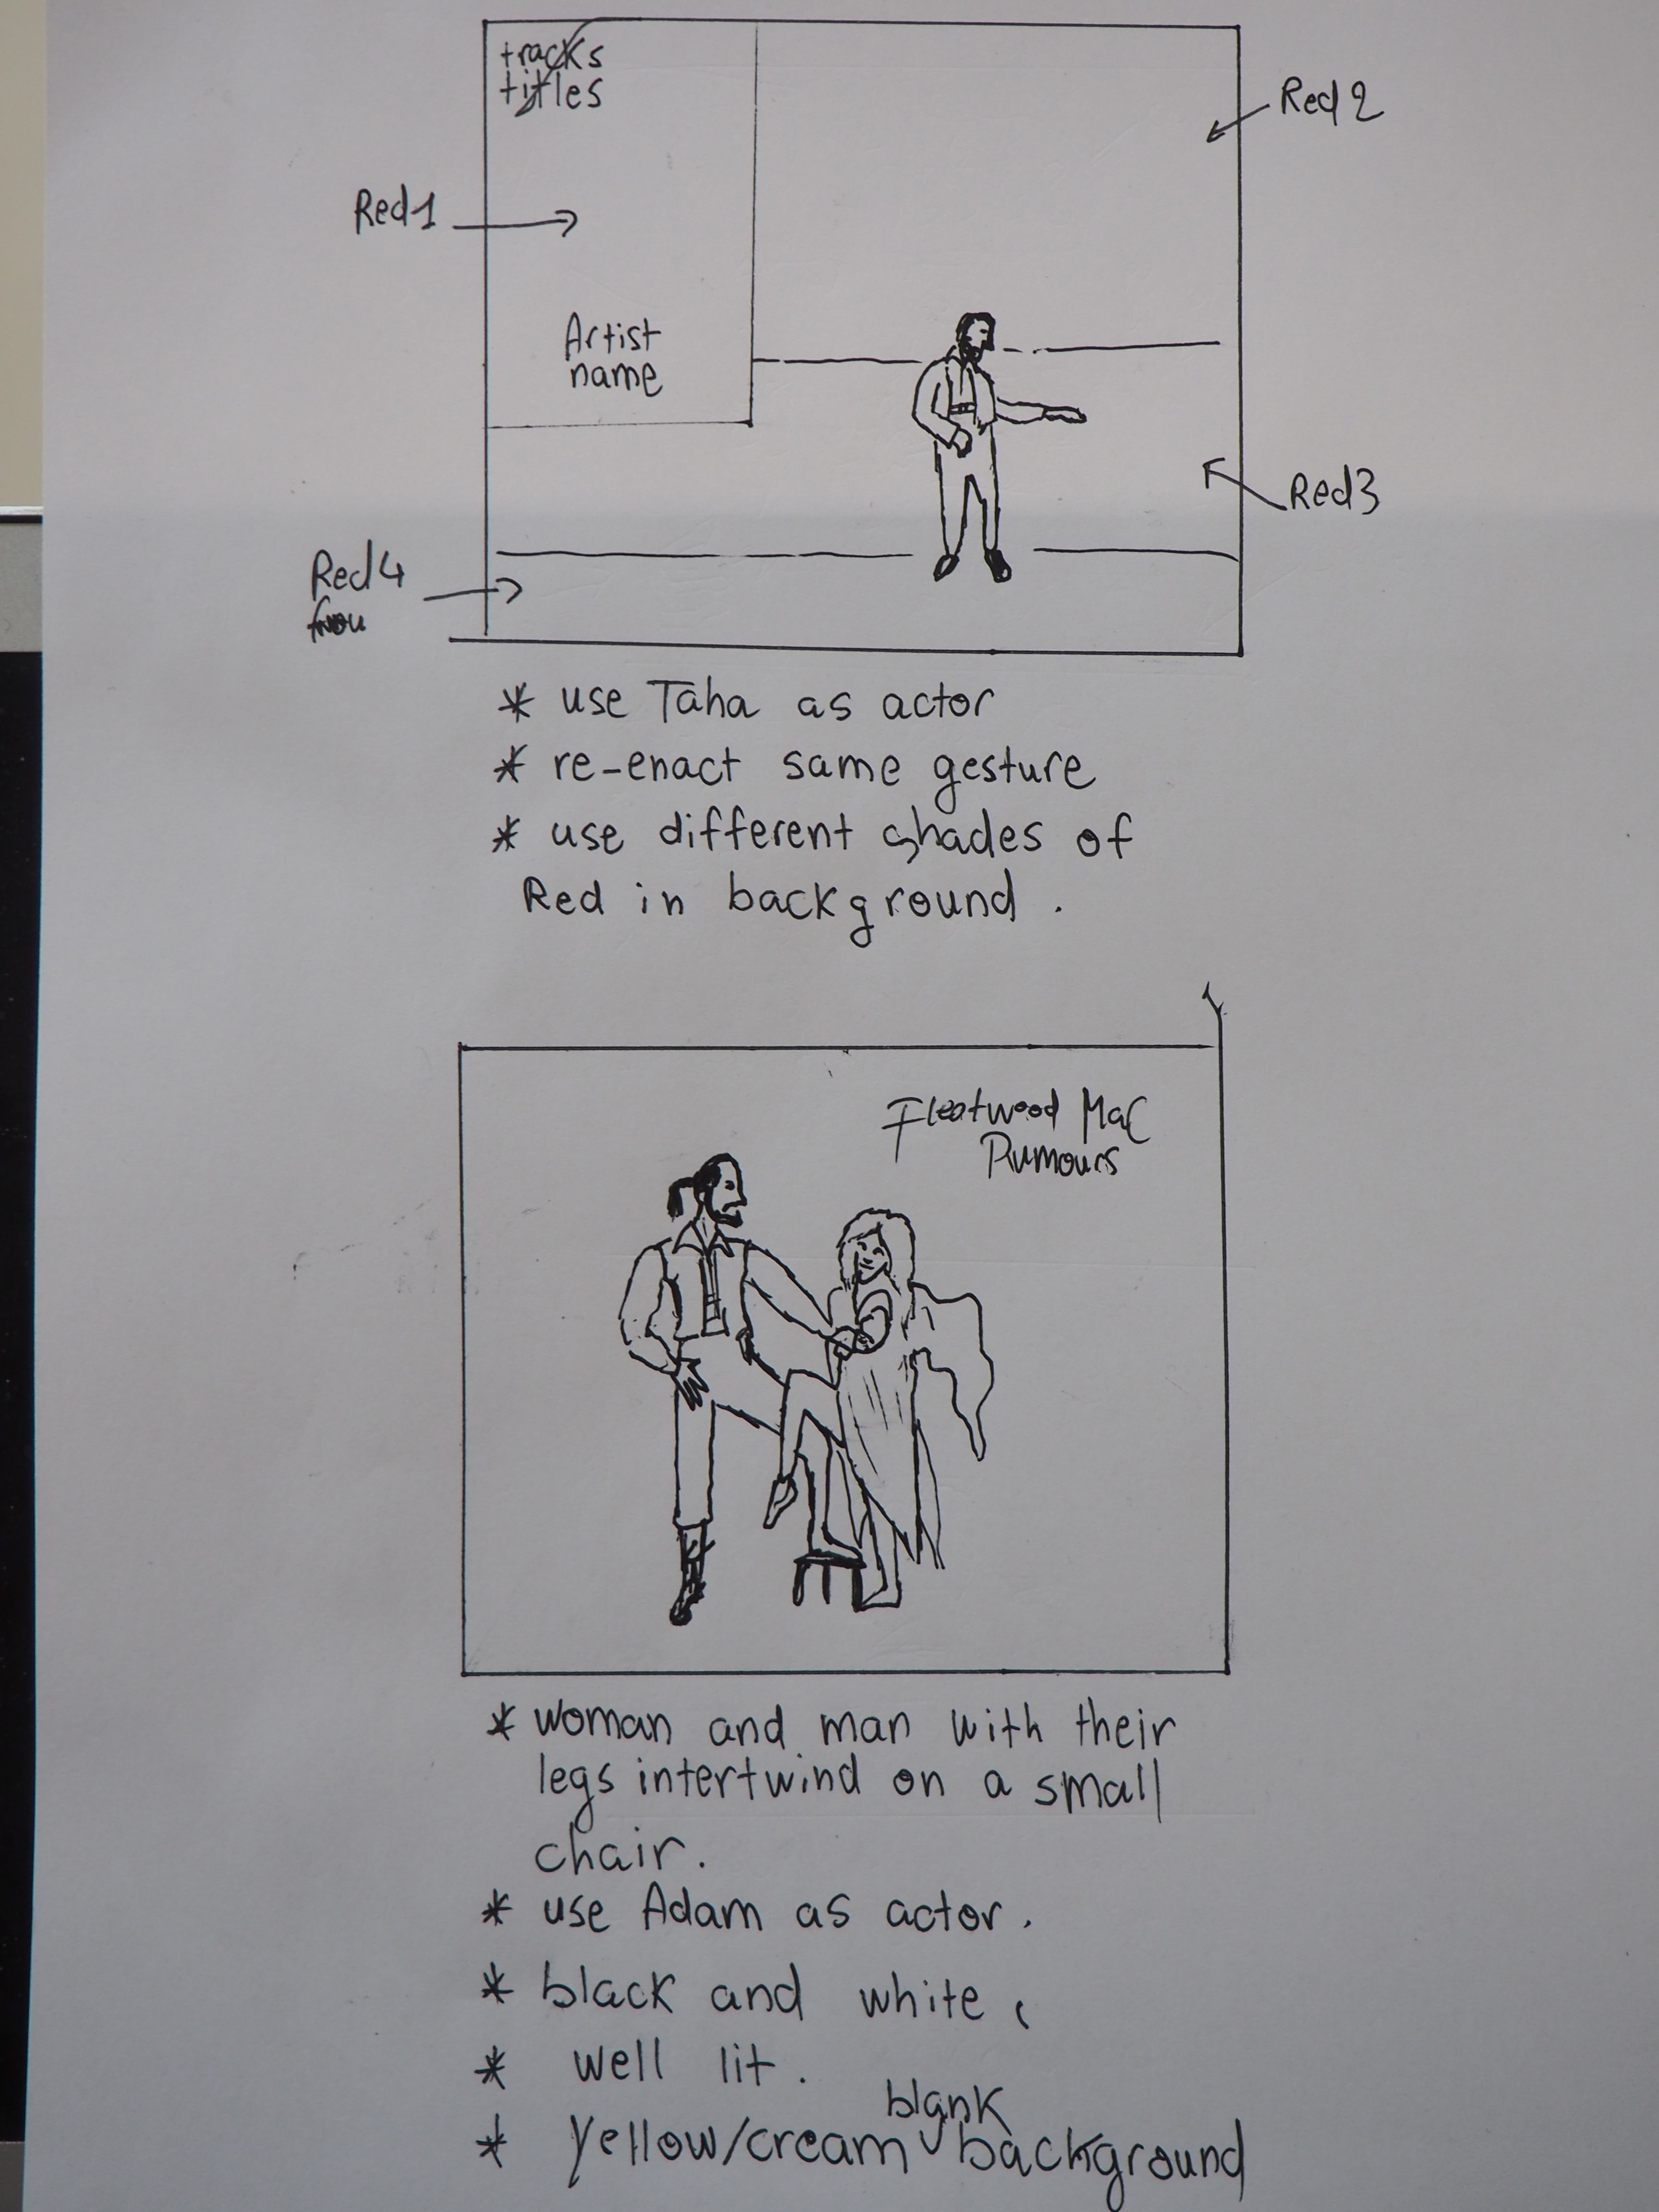 tracks
titles
Red 2
Red 1
Artist
name
Red 3
Red 4
* use Taha as actor
* re-enact same gesture
* use different shades of
Red in background .
Fleetwood Mac
Rumours
* woman and man with their
legs intertwind on a small
chair.
* use Adam as actor.
* black and white
* well lit.
blank
* Yellow/cream background